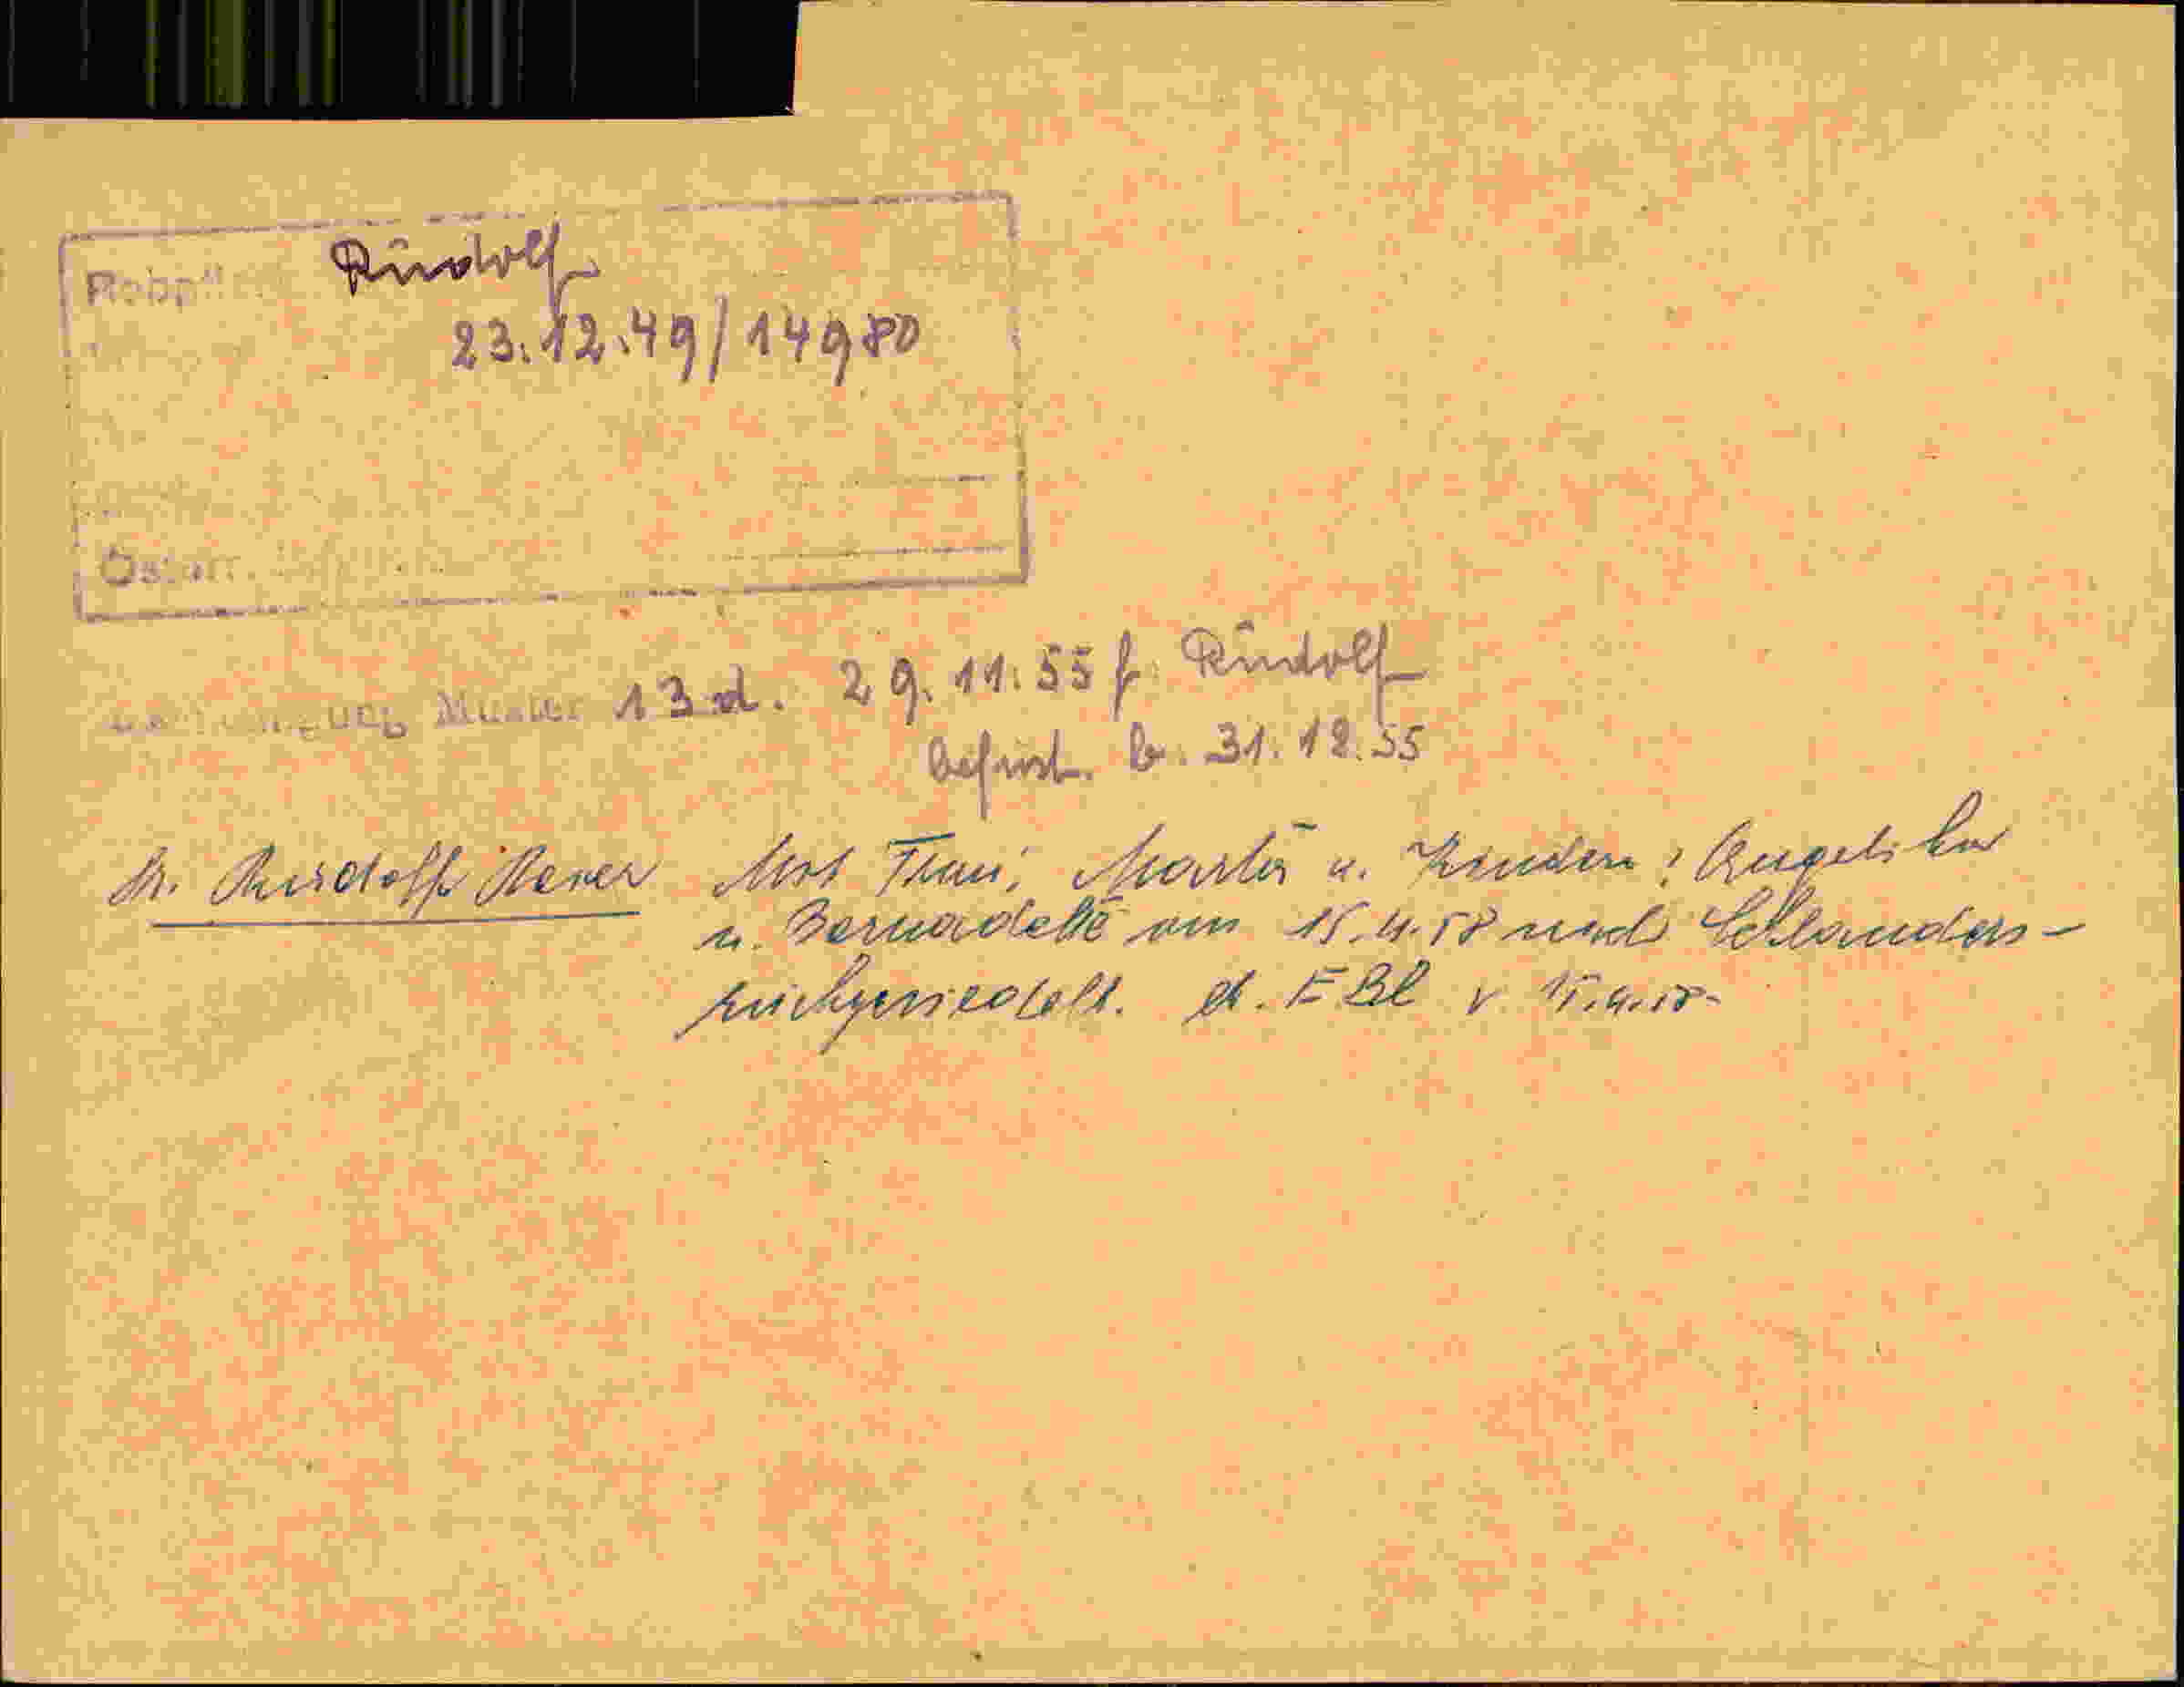 Rudolf
23.12.49/14980
Österr.
Muster 13 d. 29.11.55 f. Rudolf
befrist. b. 31.12.55
Dr. Rudolf mit Frau, Marta u. Kindern: Angelika
u. Bernadette am 15.4.58 nach Schlanders
rückgesiedelt. lt. EBl v. 15.4.58